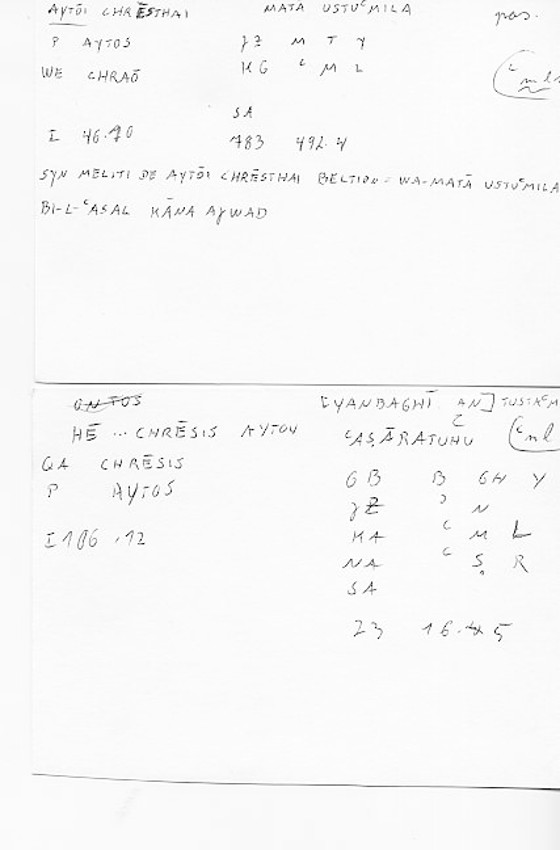 AYTŌI CHRĒSTHAI MATĀ USTUᶜMILA pas.
P AYTOS JZ M T Y
WE CHRAŌ KG ᶜ M L ᶜml
SA
I 46.10 783 492.4
SYN MELITI DE AYTŌI CHRĒSTHAI BELTION = WA-MATĀ USTUᶜMILA
BI-L-ᶜASAL KĀNA AJWAD
ONTOS [YANBAGHĪ AN] TUSTAᶜM
HĒ ... CHRĒSIS AYTOY ᶜAṢĀRATUHŪ ᶜml
QA CHRĒSIS GB B GH Y
P AYTOS JZ ʾ N
I 106.12 KA ᶜ M L
NA ᶜ Ṣ R
SA
Z3 16.5